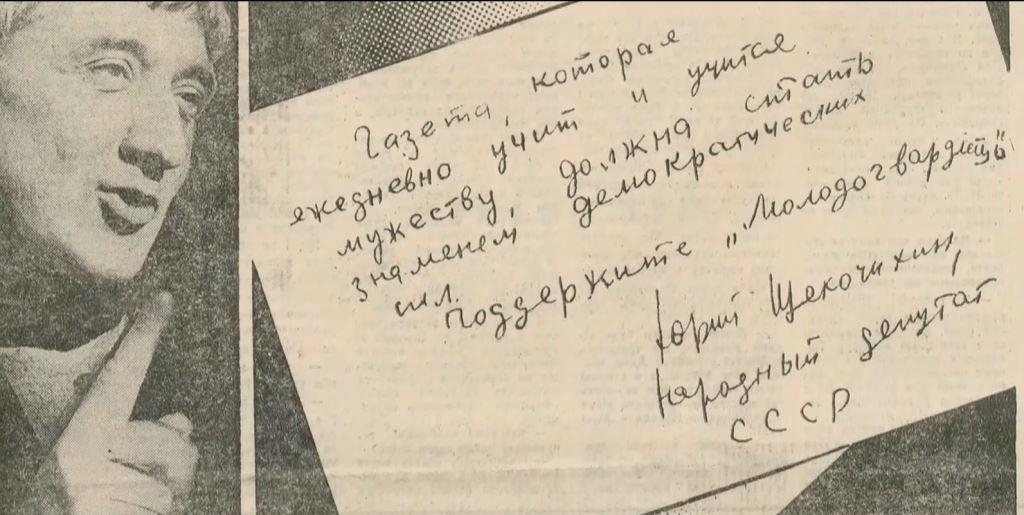 Газета, которая
ежедневно учит и учится
мужеству, должна стать
знаменем демократических
сил.
Поддержите „Молодогвардеец"
Юрий Щекочихин,
народный депутат
СССР